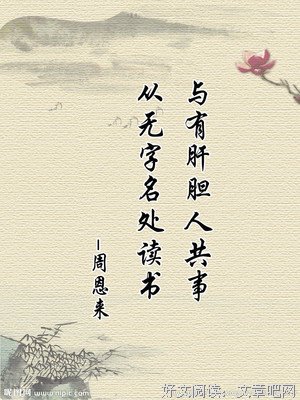 与有肝胆人共事
从无字名处读书
–周恩来
好文阅读：文章吧网
昵图网 www.nipic.com